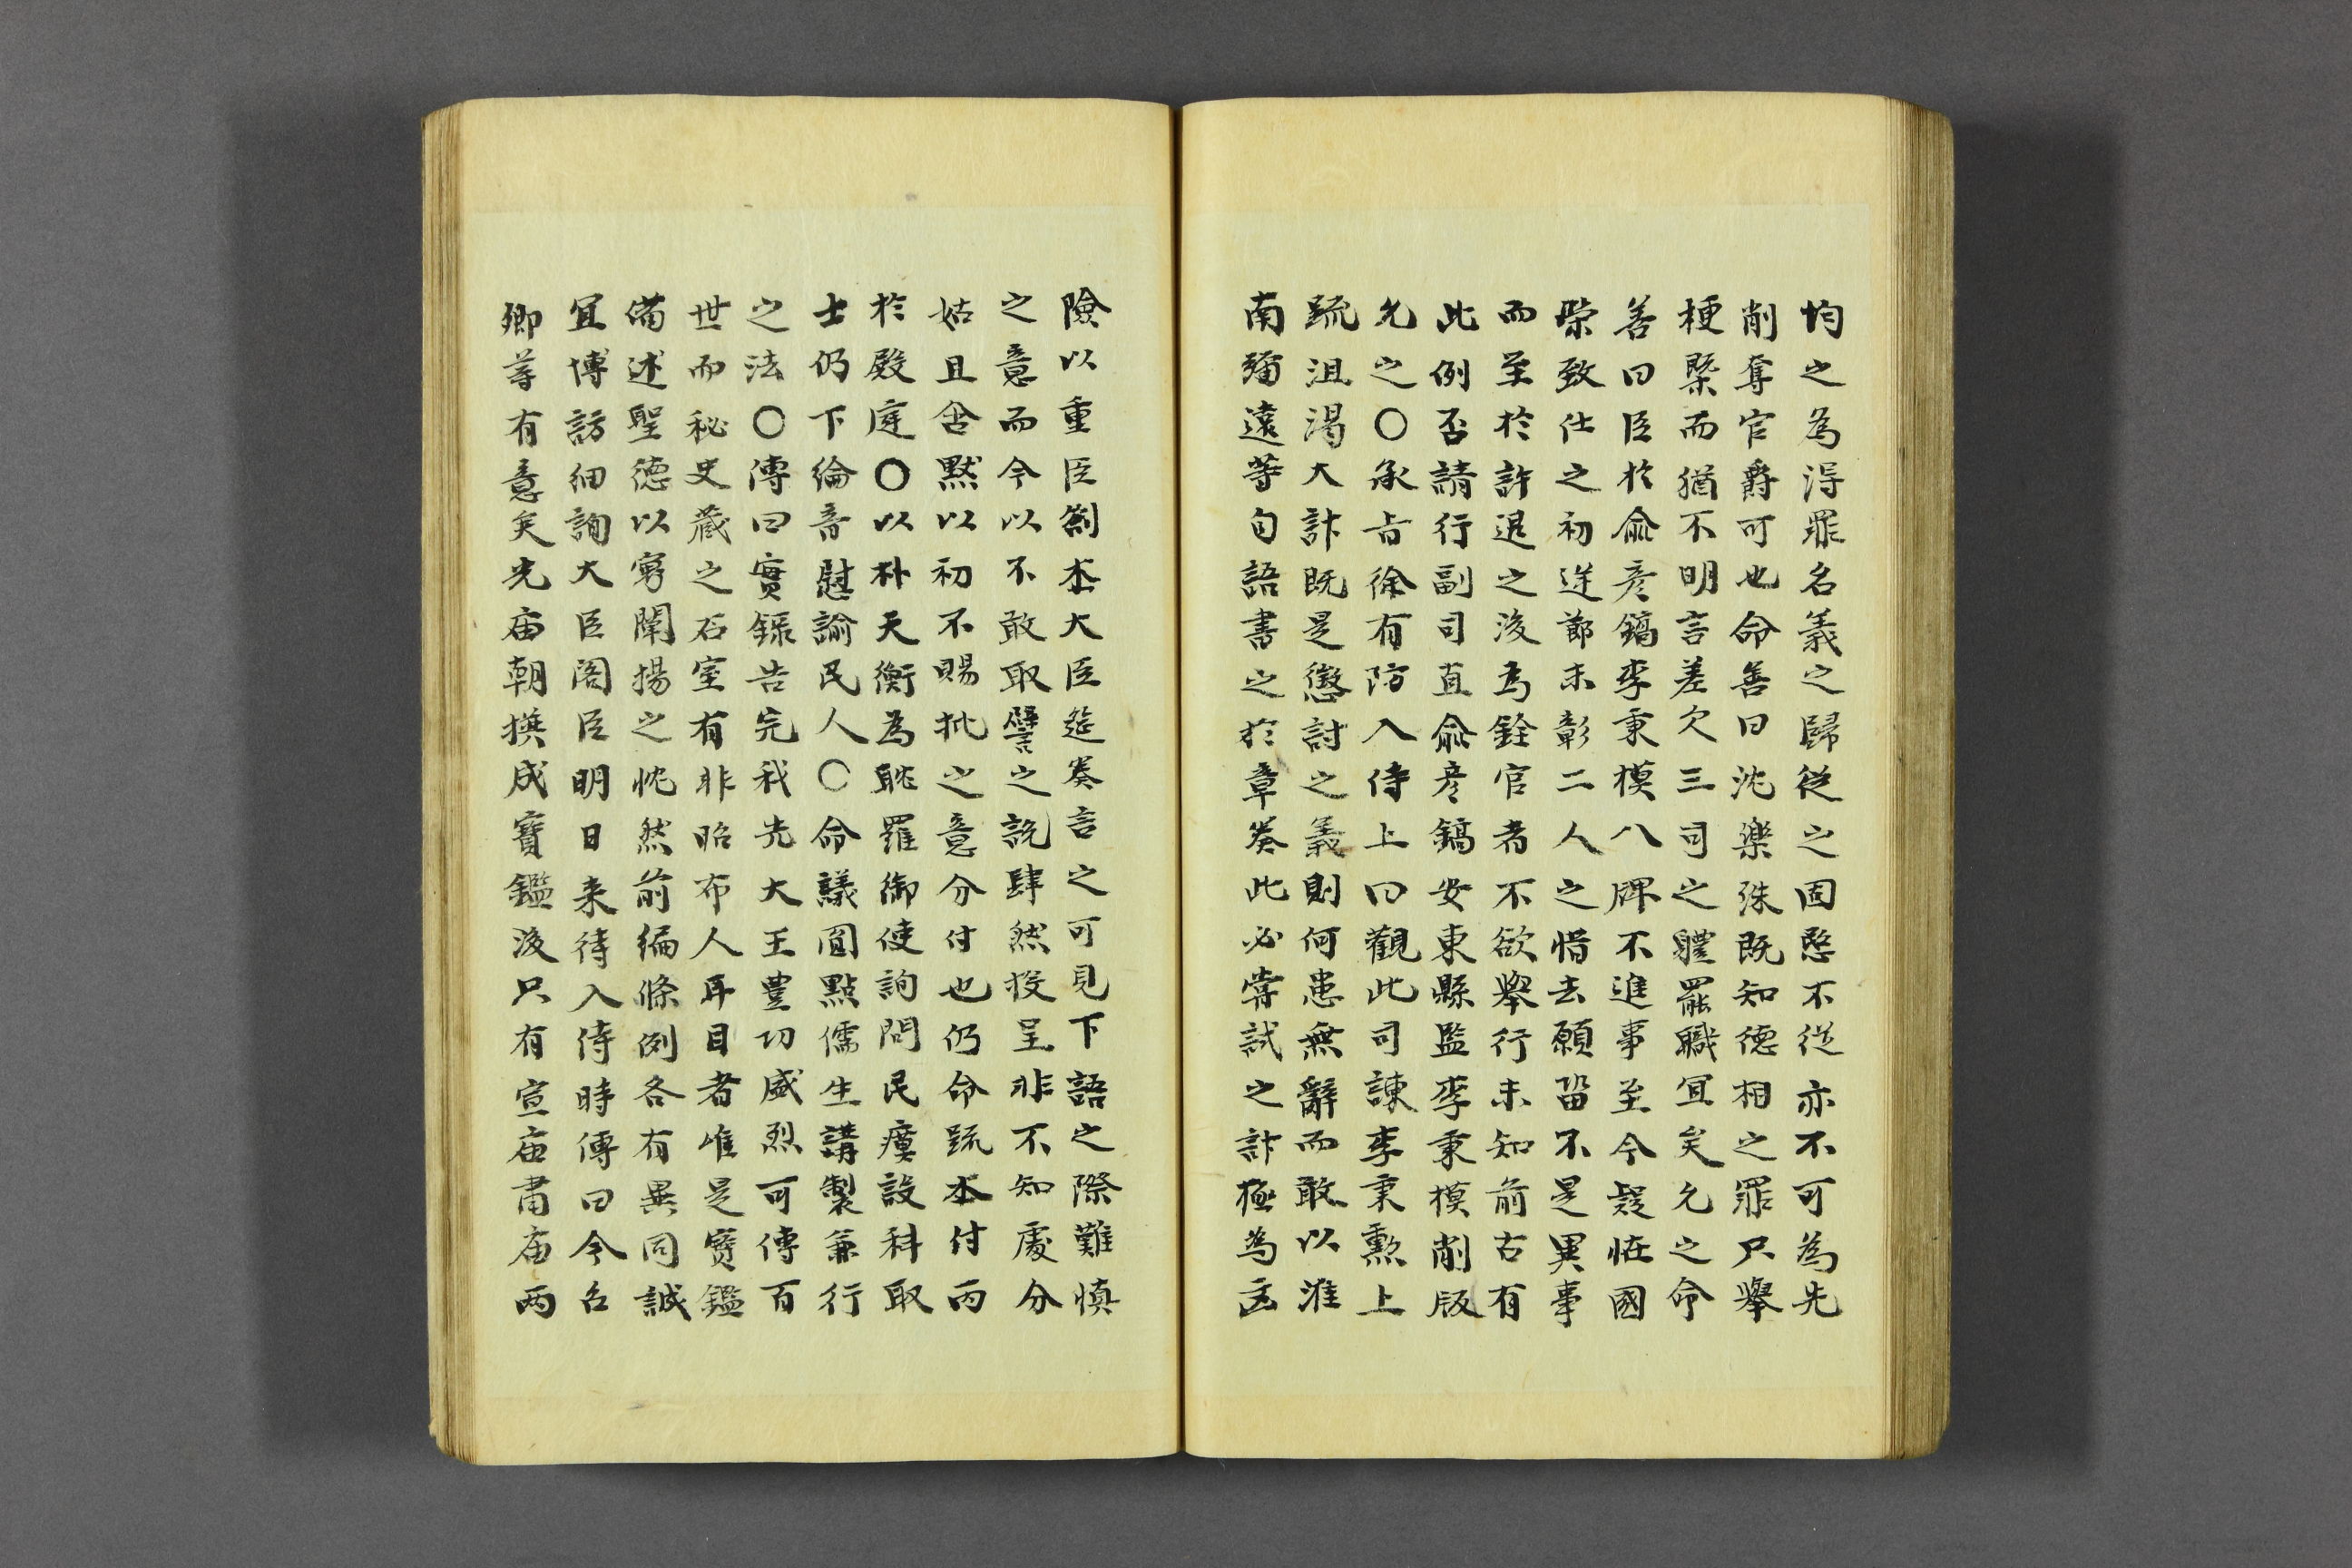 均之為得罪名義之歸従之固慜不従亦不可為先
削奪官爵可也命善曰沈樂洙既知德相之罪只擧
梗槩而猶不明言差欠三司之軆罷職冝矣允之命
善曰臣扵兪彦鎬李秉模八牌不進事至今疑恠國
榮致仕之初逆節未彰二人之惜去願留不是異事
而至扵許退之後為銓官者不欲擧行未知前古有
此例否請行副司直兪彦鎬安東縣監李秉模削版
允之○承㫖徐有防入侍上曰觀此司諫李秉勲上
疏沮渴大計既是懲討之義則何患無辭而敢以淮
南彌遠等句語書之扵章奏此必嘗試之計極為
險以重臣劄本大臣筵奏言之可見下語之際難慎
之意而今以不敢取譬之說肆然投呈非不知處分
姑且含黙以初不賜批之意分付也仍命疏本付丙
扵殿庭○以朴天衡為耽羅御使詢問民瘼設科取
士仍下綸音慰諭民人○命議圓點儒生講製兼行
之法○傳曰實錄告完我先大王豊功盛烈可傳百
世而秘史蔵之石室有非昭布人耳目者唯是寳鑑
備述聖德以寓闡揚之忱然前編條例各有異同誠
冝博訪細詢大臣閣臣明日来待入侍時傳曰今召
卿等有意矣光庙朝撰成寶鑑後只有宣庙肅庙两